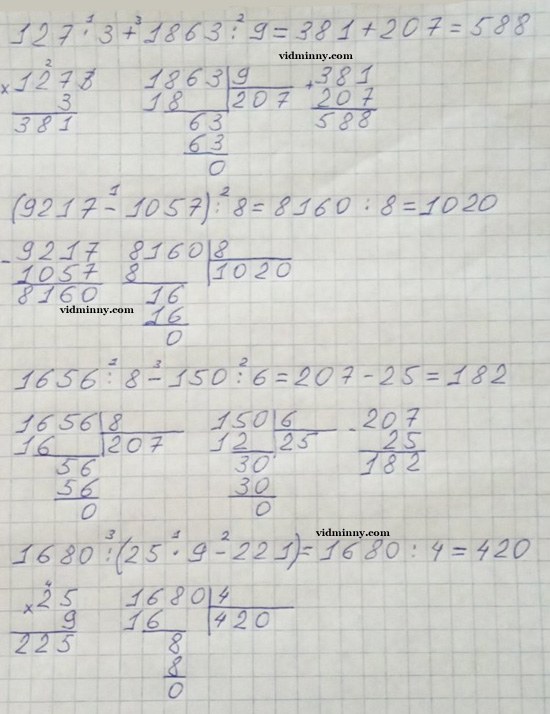 127 · 3 + 1863 : 9 = 381 + 207 = 588
1 3 2
vidminny.com
× 127
2
3
381
1863 | 9
18 | 207
63
63
0
+ 381
207
588
(9217 - 1057) : 8 = 8160 : 8 = 1020
1 2
- 9217
1057
8160
8160 | 8
8 | 1020
16
16
0
vidminny.com
1656 : 8 - 150 : 6 = 207 - 25 = 182
1 3 2
1656 | 8
16 | 207
56
56
0
150 | 6
12 | 25
30
30
0
- 207
25
182
vidminny.com
1680 : (25 · 9 - 221) = 1680 : 4 = 420
3 1 2
4
× 25
9
225
1680 | 4
16 | 420
8
8
0